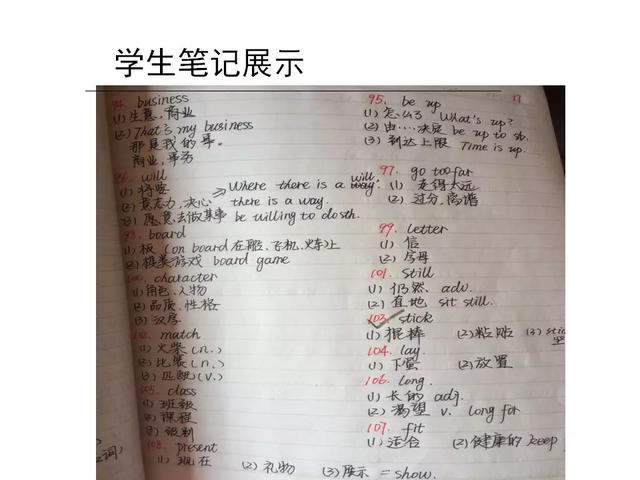 学生笔记展示
94. business
(1) 生意,商业
(2) That's my business
那是我的事。
商业,事务
96. will
(1) 将要
(2) 意志力,决心
(3) 愿意去做某事 be willing to do sth.
Where there is a will,
there is a way.
98. board
(1) 板 (on board 在船、飞机、火车)上
(2) 棋类游戏 board game
100. character
(1) 角色,人物
(2) 品质,性格
(3) 汉字
102. match
(1) 火柴 (n.)
(2) 比赛 (n.)
(3) 匹配 (v.)
105. class
(1) 班级
(2) 课程
(3) 级别
108. present
(1) 现在 (2) 礼物 (3) 展示 = show.
95. be up
(1) 怎么了 What's up?
(2) 由……决定 be up to sb.
(3) 到达上限 Time is up.
97. go too far
(1) 走得太远
(2) 过分,离谱
99. letter
(1) 信
(2) 字母
101. still
(1) 仍然 adv.
(2) 直地 sit still.
103. stick
(1) 棍棒 (2) 粘贴 (3)
104. lay.
(1) 下蛋 (2) 放置
106. long.
(1) 长的 adj.
(2) 渴望 v. long for
107. fit
(1) 适合 (2) 健康的 keep
词)